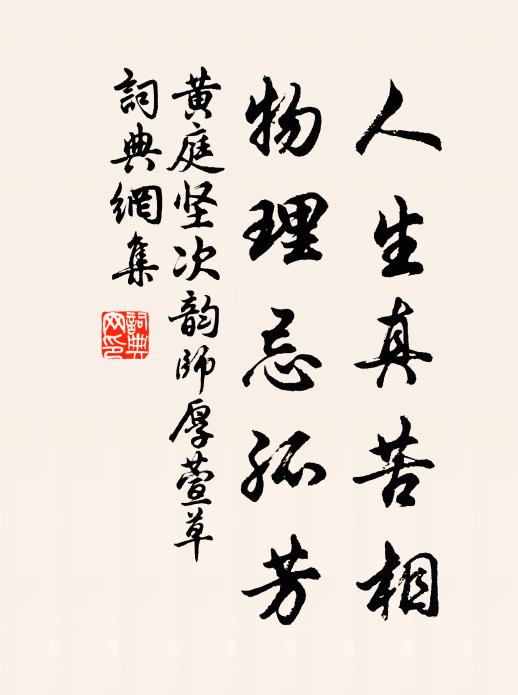 人生真苦相
物理忌孤芳
黄庭坚次韵師厚萱草
詞典網集
詞典
网印